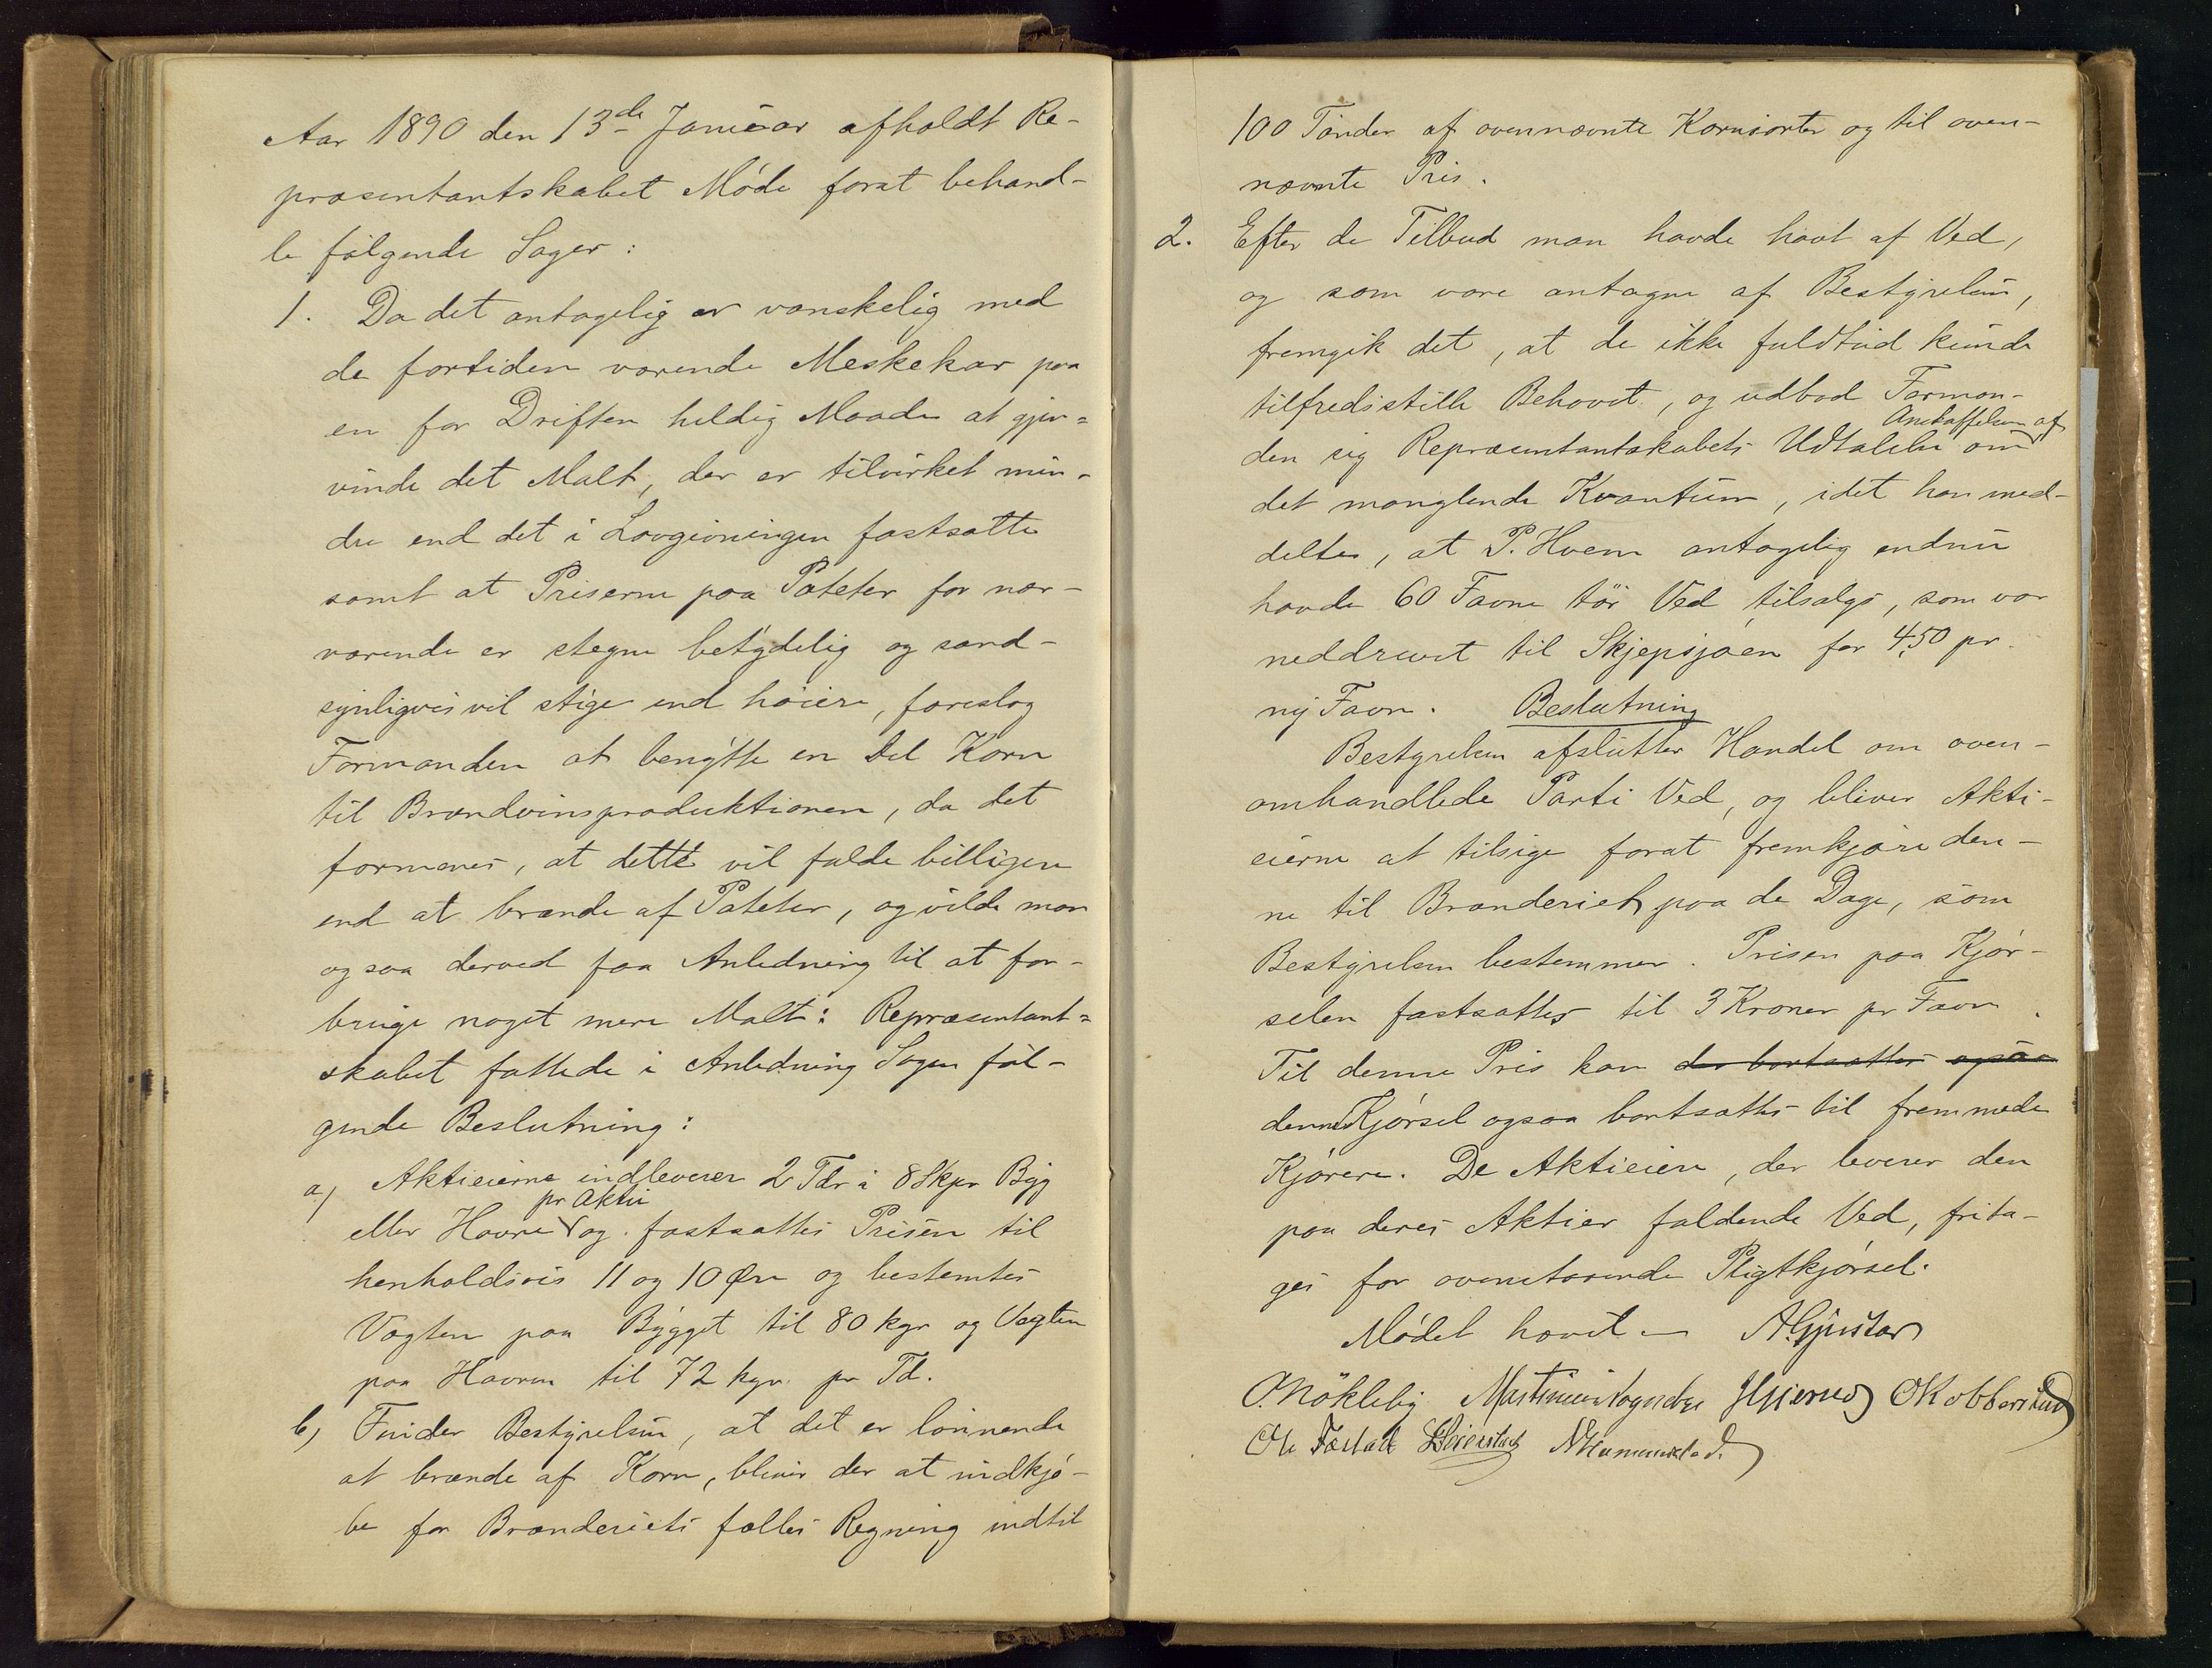 Aar 1890 den 13de Januar afholdt Re-
præsentantskabet Møde forat behand-
le følgende Sager:
1. Da det antagelig er vanskelig med
de fortiden værende Meskekar paa
en for Driften heldig Maade at gjen-
vinde det Malt, der er tilvirket min-
dre end det i Lovgivningen fastsatte
samt at Priserne paa Poteter for nær-
værende er stegne betydelig og sand-
synligvis vil stige end høiere, foreslog
Formanden at benytte en Del Korn
til Brændevinsproduktionen, da det
formenes, at dette vil falde billigere
end at brænde af Poteter, og vilde man
ogsaa derved faa Anledning til at for-
bruge noget mere Malt: Repræsentant-
skabet fattede i Anledning Sagen føl-
gende Beslutning:
a) Aktieierne indleverer 2 Tdr à 8 Skpr Byg
pr Aktie
eller Havre og fastsattes Prisen til
henholdsvis 11 og 10 Øre og bestemtes
Vægten paa Bygget til 80 kgr og Vægten
paa Havren til 72 kgr pr Td.
b) Finder Bestyrelsen, at det er lønnende
at brænde af Korn, bliver der at indkjø-
be for Brænderiets fælles Regning indtil
100 Tønder af ovennævnte Kornsorter og til oven-
nævnte Pris.
2. Efter de Tilbud man havde havt af Ved,
og som vare antagne af Bestyrelsen,
fremgik det, at de ikke fuldtud kunde
tilfredsstille Behovet, og udbad Forman-
Anskaffelsen af
den sig Repræsentantskabets Udtalelse om
det manglende Kvantum, idet han med-
delte, at P. Hvem antagelig endnu
havde 60 Favne tør Ved tilsalgs, som var
neddrevet til Skjepsjøen for 4,50 pr.
ny Favn. Beslutning
Bestyrelsen afslutter Handel om oven-
omhandlede Parti Ved, og bliver Akti-
eierne at tilsige forat fremkjøre den-
ne til Brænderiet paa de Dage, som
Bestyrelsen bestemmer. Prisen paa Kjør-
selen fastsattes til 3 Kroner pr Favn.
Til denne Pris kan der bortsættes ogsaa
denne Kjørsel ogsaa bortsættes til fremmede
Kjørere. De Aktieiere, der leverer den
paa deres Aktier faldende Ved, frita-
ges for ovenstaaende Pligtkjørsel.
Mødet hævet. A Gjestvar
O. Nøkleby O Kobberstad
Ole Færstad